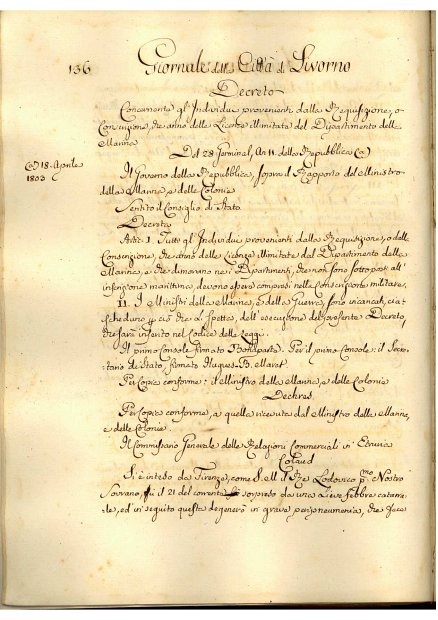 136 Giornale della Città di Livorno
Decreto
Concernente gl'Individui provenienti dalla Requisizione, o
Conscrizione, che anno delle Licenze illimitate del Dipartimento della
Marina
Del 28 Germinal, An 11 della Repubblica (a)
(a) 18. Aprile
1803
Il Governo della Repubblica, sopra il Rapporto del Ministro
della Marina, e delle Colonie
Sentito il Consiglio di Stato
Decreta
Artic. 1. Tutti gl'Individui provenienti dalla Requisizione, o dalla
Conscrizione, che anno delle Licenze illimitate dal Dipartimento della
Marina, e che dimorano nei Dipartimenti, che non sono sottoposti all'
inscrizione marittima, devono essere compresi nella Conscrizione militare.
11. I Ministri della Marina, e della Guerra, sono incaricati, cia=
scheduno in ciò che gli spetta, dell'esecuzione del presente Decreto,
che sarà inserito nel Codice delle Leggi.
Il primo Console firmato Bonaparte. Per il primo Console: il Secre=
tario di Stato, firmato Hugues=B. Maret.
Per Copia conforme: il Ministro della Marina, e delle Colonie
Dechres.
Per Copia conforme, a quella ricevuta dal Ministro della Marina,
e delle Colonie.
Il Commissario Generale delle Relazioni Commerciali in Etruria
Si è inteso da Firenze, come S. M. il Re Lodovico p.mo Nostro
Sovrano, fu il 21 del corrente sorpreso da una lieve febbre catarra=
le, ed in seguito questa degenerò in grave peripneumonia, che fece